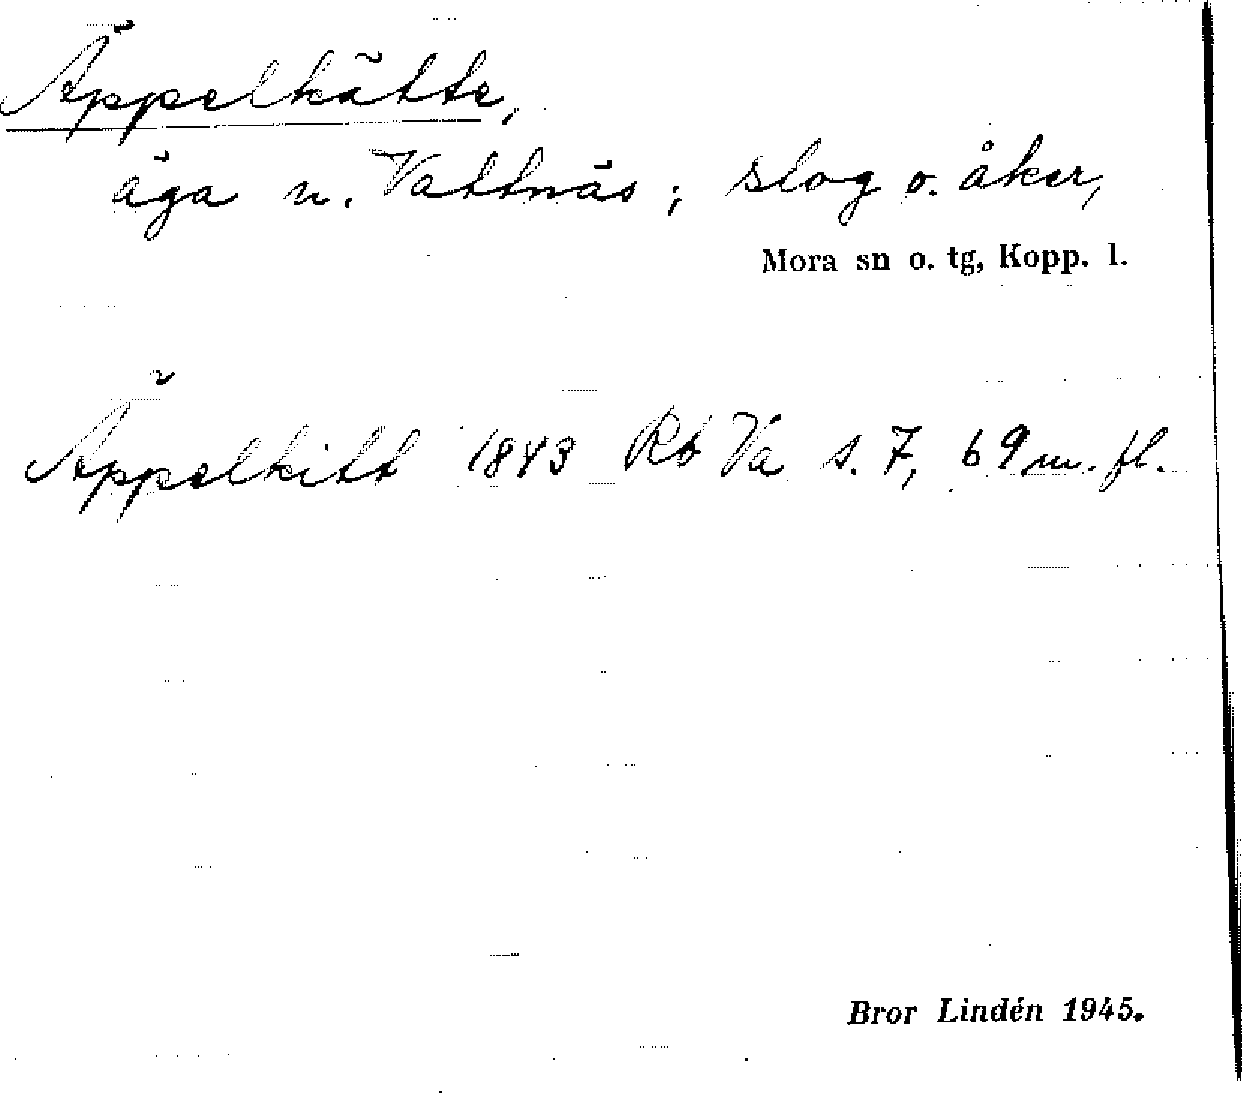 Äppelkätte,
äga n. Vattnäs; slog o. åker,
Mora sn o. tg, Kopp. l.
Äppelkitt 1843 Rb Vä s. 7, 69 m. fl.
Bror Lindén 1945.